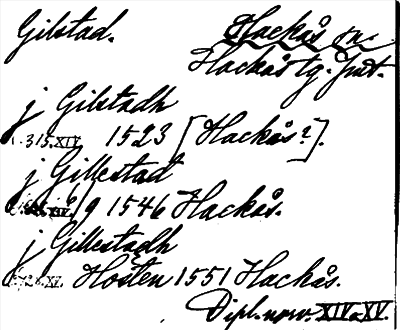 Gilstad. Hackås sn.
Hackås tg. Jmt.
j Gilstadh
315.XIV. 1523 [Hackås?].
j Gillestad
XIV. 6/9 1546 Hackås.
j Gillestadh
XV. Hosten 1551 Hackås.
Dipl. norv. XIV o. XV.